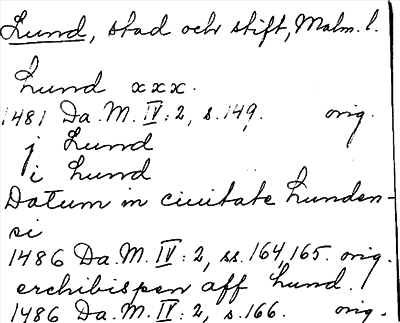 Lund, stad och stift, Malm. l.
Lund xxx.
1481 Da. M. IV: 2, s. 149. orig.
j Lund
i Lund
Datum in ciuitate Lunden-
si
1486 Da. M. IV: 2, ss. 164, 165. orig.
erchibispen aff Lund.
1486 Da. M. IV: 2, s. 166. orig.